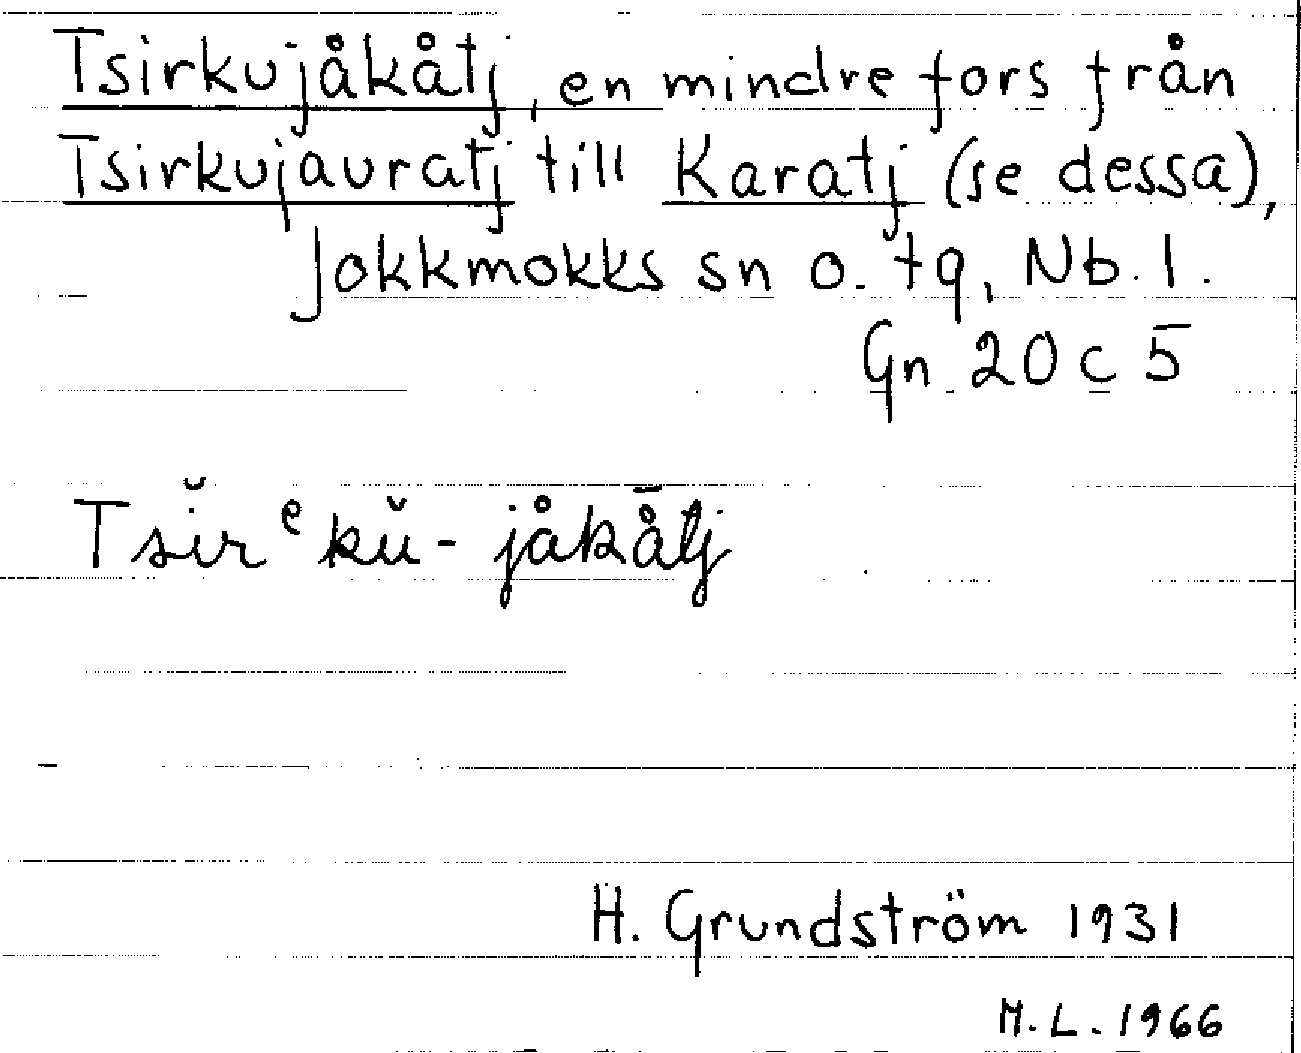 Tsirkujåkåtj, en mindre fors från
Tsirkujauratj till Karatj (se dessa),
Jokkmokks sn o. tg, Nb. l.
Gn 20 c 5
Tsĭrᵉkŭ- jåkå̄tj
H. Grundström 1931
M. L. 1966